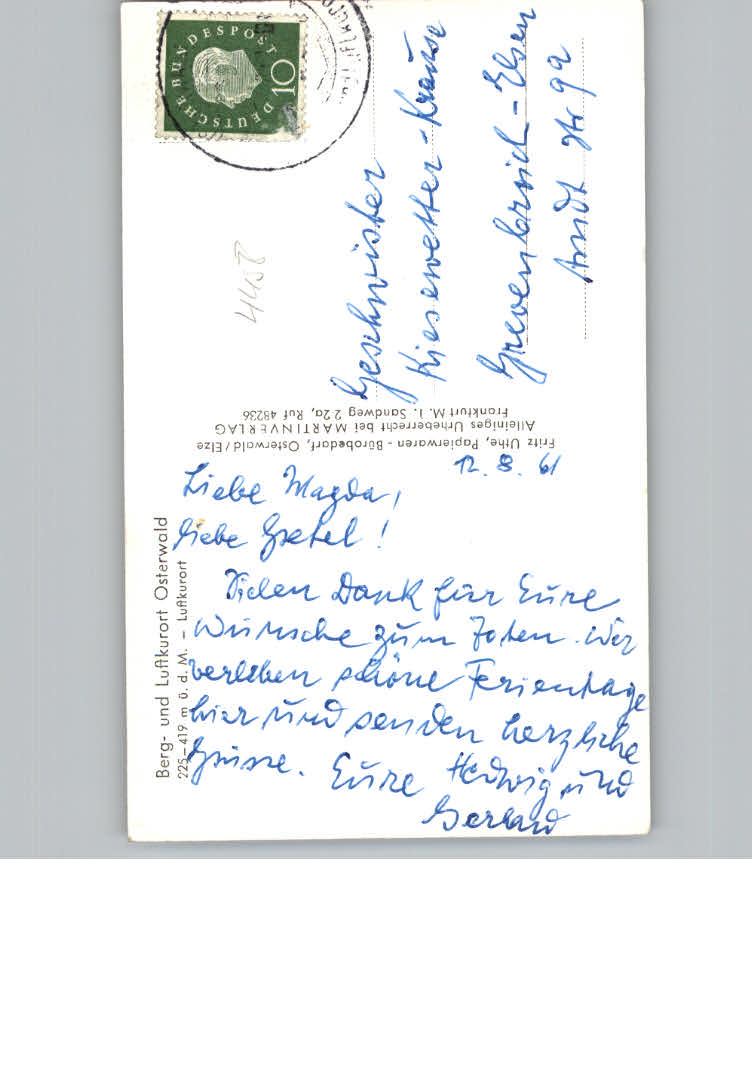 DEUTSCHE BUNDESPOST
10
4458
Geschwister
Kiesewetter-Krause
Grevenbroich-Elsen
Arndt Str 9a
Fritz Uthe, Papierwaren - Bürobedarf, Osterwald/Elze
Alleiniges Urheberrecht bei MARTINVERLAG
Frankfurt M. 1. Sandweg 2 2a, Ruf 48236
Berg- und Luftkurort Osterwald
225–419 m ü. d. M. – Luftkurort
12. 8. 61
Liebe Magda,
liebe Gretel!
Vielen Dank für Eure
Wünsche zum 70ten. Wir
verleben schöne Ferientage
hier und senden herzliche
Grüsse. Eure Hedwig und
Gerhard